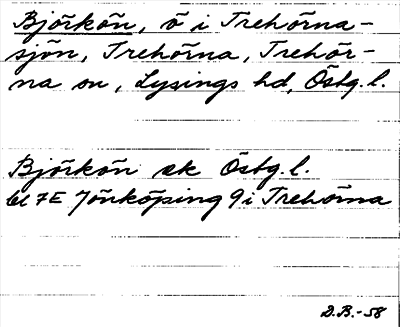 Björkön, ö i Trehörna-
sjön, Trehörna, Trehör-
na sn, Lysings hd, Östg. l.
Björkön ek Östg. l.
bl 7E Jönköping 9i Trehörna
D.B.-58